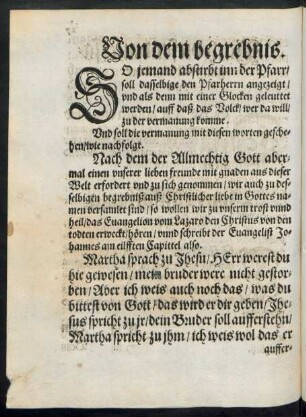 Von dem begrebnis.
SO jemand abstirbt inn der Pfarr/
soll dasselbige den Pfarherrn angezeigt/
vnd als denn mit einer Glocken geleuttet
werden/ auff daß das Volck/ wer da will/
zu der vermanung komme.
Vnd soll die vermanung mit diesen worten gesche-
hen/ wie nachfolgt.
Nach dem der Allmechtig Gott aber-
mal einen vnserer lieben freunde mit gnaden aus dieser
Welt erfordert vnd zu sich genommen/ wir auch zu des-
selbigen begrebnis auß Christlicher liebe in Gottes na-
men versamlet sind/ so wollen wir zu vnserm trost vnnd
heil/ das Euangelion vom Lazaro den Christus von den
todten erweckt/ hören/ vnnd schreibt der Euangelist Jo-
hannes am eilfften Capittel also.
Martha sprach zu Jhesu/ HErr werest du
hie gewesen/ mein bruder were nicht gestor-
ben/ Aber ich weis auch noch das/ was du
bittest von Gott/ das wird er dir geben/ Jhe-
sus spricht zu jr/ dein Bruder soll aufferstehn/
Martha spricht zu jhm/ ich weis wol das er
auffer-